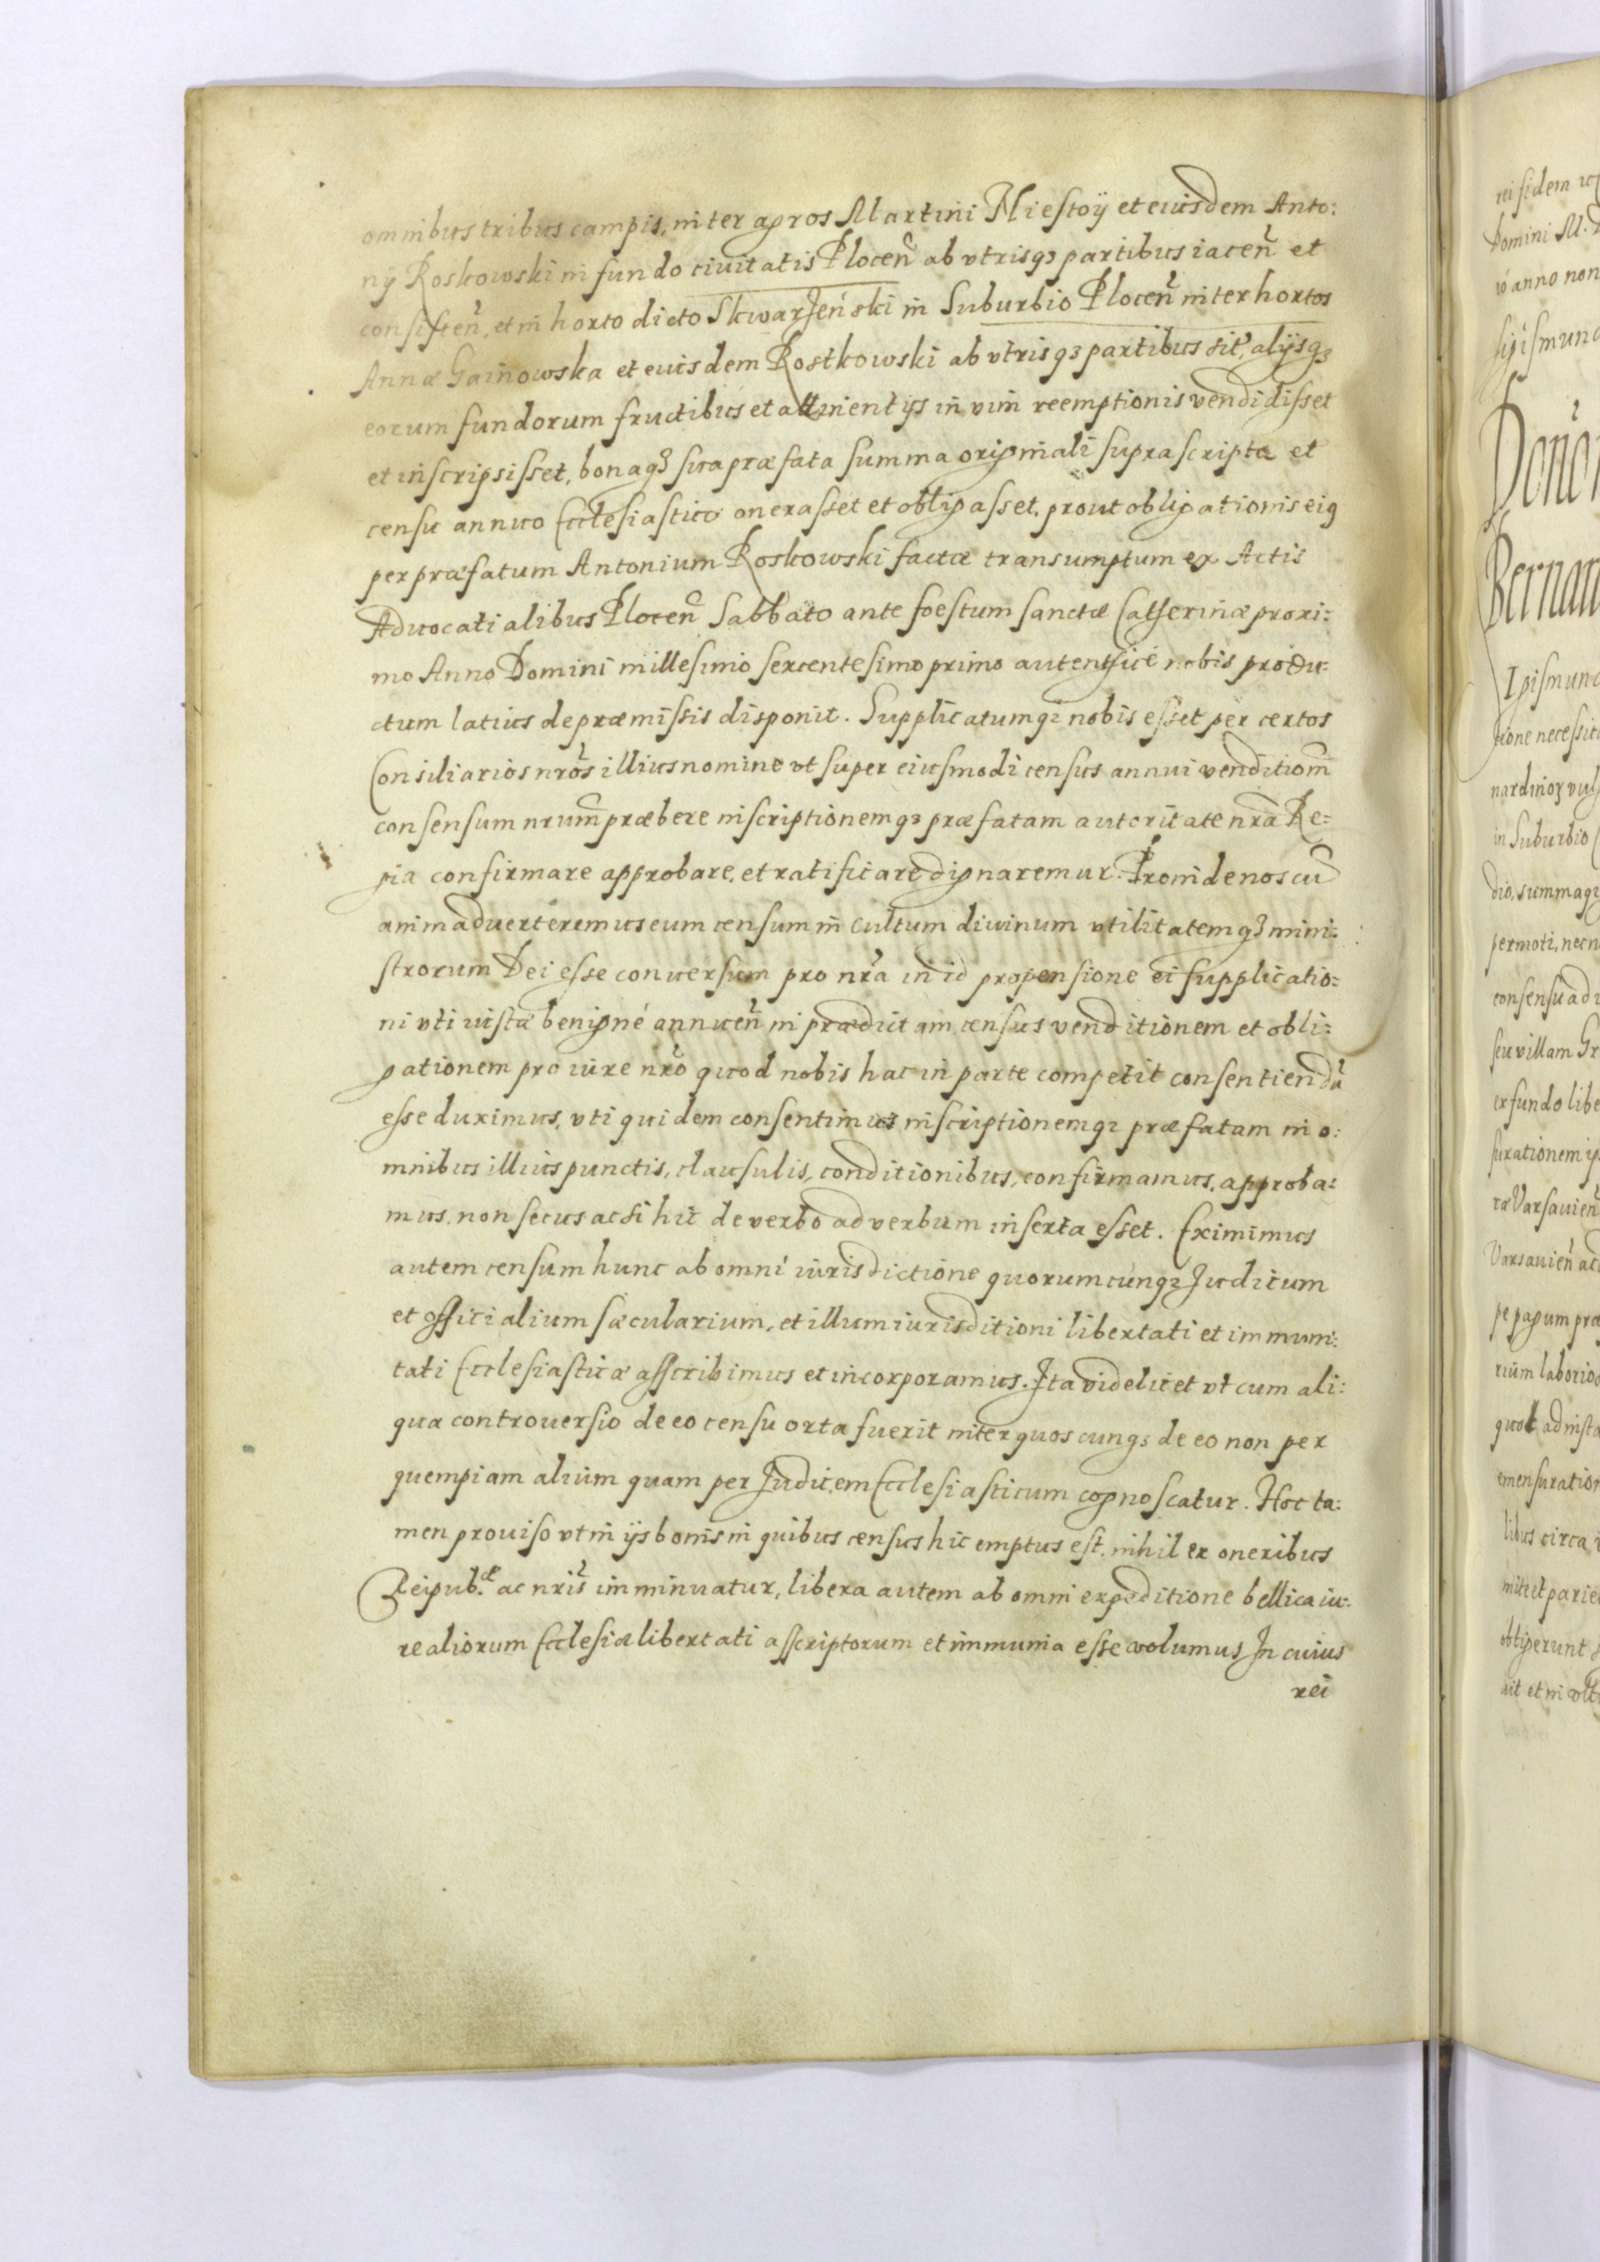 omnibus tribus campis, inter agros Martini Miestoÿ et eiusdem Anto:
nÿ Roskowski in fundo ciuitatis Plocen̄ ab vtrisq₃ partibus iacen̄ et
consisten̄, et in horto dicto Skwarzeński in Suburbio Plocen̄ inter hortos
Annæ Gainowska et eiusdem Rostkowski ab vtrisq₃ partibus sit̄, alÿsq₃
eorum fundorum fructibus et attinentÿs in vim reemptionis vendidisset
et inscripsisset, bonaq₃ sua præfata summa originali suprascripta et
censu annuo Ecclesiastico onerasset et obligasset, prout obligationis eiꝰ
per præfatum Antonium Roskowski factæ transumptum ex Actis
Aduocatialibus Plocen̄ Sabbato ante foestum sanctæ Catherinæ proxi:
mo Anno Domini millesimo sexcentesimo primo autenthicé nobis produ:
ctum latius de præmissis disponit. Supplicatumq₃ nobis esset per certos
Consiliarios nr̄os illius nomine vt super eiusmodi census annui venditiom̄
consensum nrum̄ præbere inscriptionemq₃ præfatam autoritate nr̄a Re:
gia confirmare approbare, et ratificare dignaremur. Proindenos cū
animaduerteremus eum censum in cultum diuinum vtilitatemq₃ mini:
strorum Dei esse conuersum pro nr̄a in id propensione ei supplicatio:
ni vti iustæ benigné annuen̄ in prædictam census venditionem et obli:
gationem pro iure nr̄o quod nobis hac in parte competit consentiendū
esse duximus, vti quidem consentimus inscriptionemq₃ præfatam in o:
mnibus illius punctis, clausulis, conditionibus, confirmamus, approba:
mus, non secus ac si hic de verbo ad verbum inserta esset. Eximimus
autem censum hunc ab omni iurisdictione quorumcunq₃ Judicum
et officialium sæcularium, et illum iurisditioni libertati et immuni:
tati Ecclesiasticæ asscribimus et incorporamus. Ita videlicet vt cum ali:
qua controuersio de eo censu orta fuerit inter quoscunq₃ de eo non per
quempiam alium quam per Judicem Ecclesiasticum cognoscatur. Hoc ta:
men prouiso vt in ÿs bonis in quibus census hic emptus est, nihil ex oneribus
Reipub.æ ac nr̄is imminuatur, libera autem ab omni expeditione bellica iu:
re aliorum Ecclesiæ libertati asscriptorum et immunia esse volumus In cuius
rei